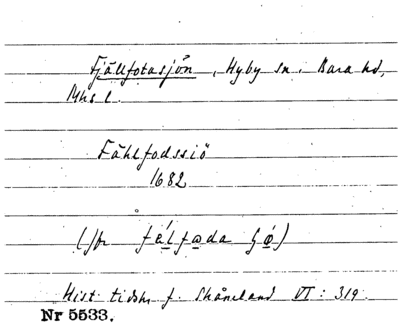 Fjällfotasjön, Hyby sn. Bara hd,
Mhs l.
Fåhlfodssiö
1682
fálfoda
Hist. tidskr. f. Skåneland VI: 319
Nr 5533.